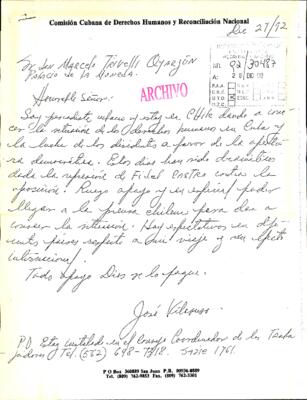 Comisión Cubana de Derechos Humanos y Reconciliación Nacional
Dic 27/92
Sr. Don Marcelo Trivelli Oyarzún
Palacio de la Moneda.
93/30487
A: 28 DIC 92
ARCHIVO
Honorable Señor:
Soy periodista cubano y estoy en Chile dando a cono
cer la situación de los derechos humanos en Cuba y
la lucha de los disidentes a favor de la apertura
democrática. Estos días han sido dramáticos
dada la represión de Fidel Castro contra la
oposición. Ruego apoyo y en especial poder
llegar a la prensa chilena para dar a
conocer la situación. Hay expectativas en dife
rentes países respecto a mi viaje y su efecto
internacional.
Todo apoyo Dios se lo pague.
José
P.D. Estoy invitado en el Consejo Coordinador de los Traba
jadores / Tel. (562) 698-7318.
P O Box 360889 San Juan P.R. 00936-0889
Tel. (809) 762-9853 Fax. (809) 762-3301